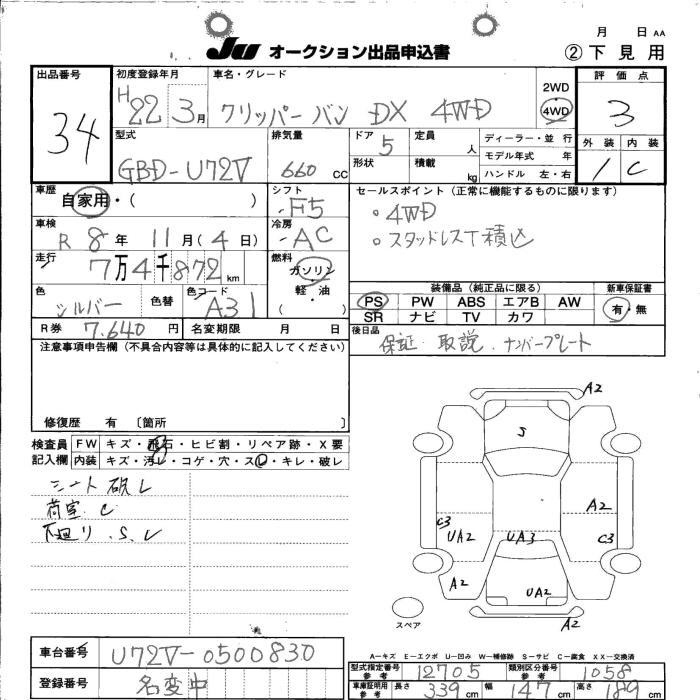 月 日 AA
JU オークション出品申込書
② 下見用
出品番号
34
初度登録年月
H22 3月
車名・グレード
クリッパーバン DX 4WD
2WD
4WD
評価点
3
型式
GBD-U72V
排気量
660 cc
ドア 5
定員 人
ディーラー・並行
モデル年式 年
形状
積載 kg
ハンドル 左・右
外装 内装
1 C
車歴
自家用・( )
シフト
F5
セールスポイント(正常に機能するものに限ります)
。4WD
。スタッドレスT積込
車検
R 8年 11月(4日)
冷房
AC
走行
7万4千872km
燃料
ガソリン
軽油
( )
色
シルバー
色替
色コード
A31
装備品(純正品に限る)
PS PW ABS エアB AW
SR ナビ TV カワ
新車保証書
有・無
R券 7,640円
名変期限 月 日
後日品
保証、取説、ナンバープレート
注意事項申告欄(不具合内容等は具体的に記入してください)
修復歴 有 〔箇所 〕
検査員
記入欄
FW キズ・飛石・ヒビ割・リペア跡・X要
内装 キズ・汚レ・コゲ・穴・スレ・キレ・破レ
荷室 C
下廻リ.S.
A2
S
A2
C3
UA2
UA3
C3
A2
UA2
A2
スペア
A-キズ E-エクボ U-凹み W-補修跡 S-サビ C-腐食 XX-交換済
車台番号
U72V-0500830
登録番号
名変中
型式指定番号
参考
12705
類別区分番号
参考
1058
車庫証明用
参考
長さ 339cm
幅 147cm
高さ 189cm